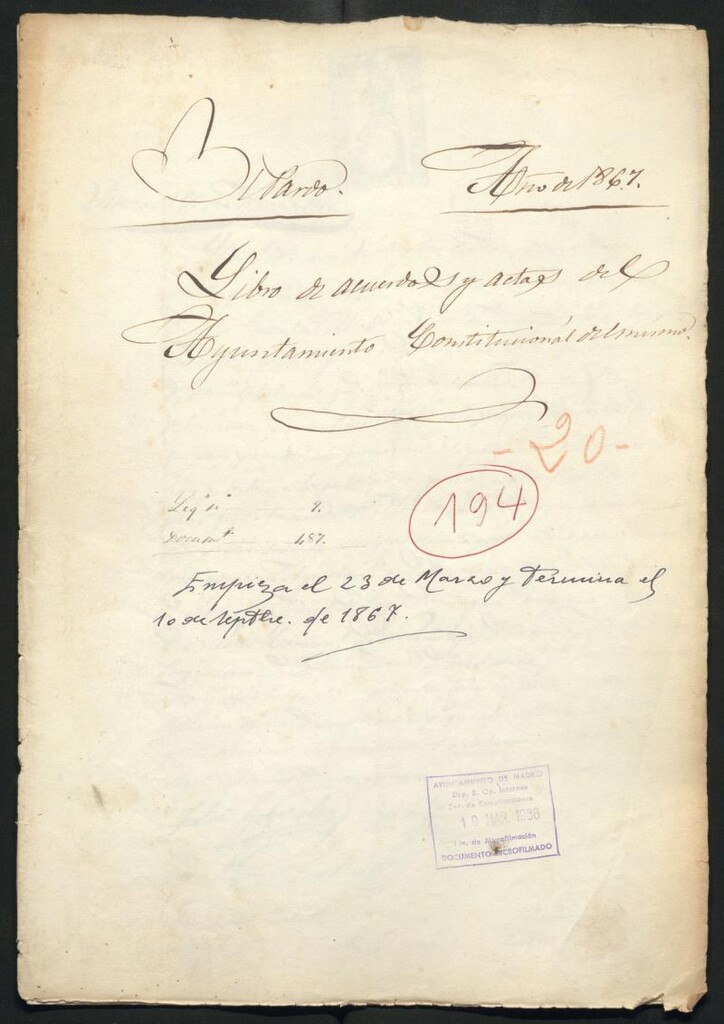 El Pardo. Año de 1867.
Libro de acuerdos y actas del
Ayuntamiento Constitucional del mismo.
- 20 -
194
Leg.º n.º 9.
Document.º 487.
Empieza el 23 de Marzo y termina el
10 de septbre. de 1867.
AYUNTAMIENTO DE MADRID
Dep. S. Op. Internos
10 MAR 1988
de Microfilmación
DOCUMENTO MICROFILMADO